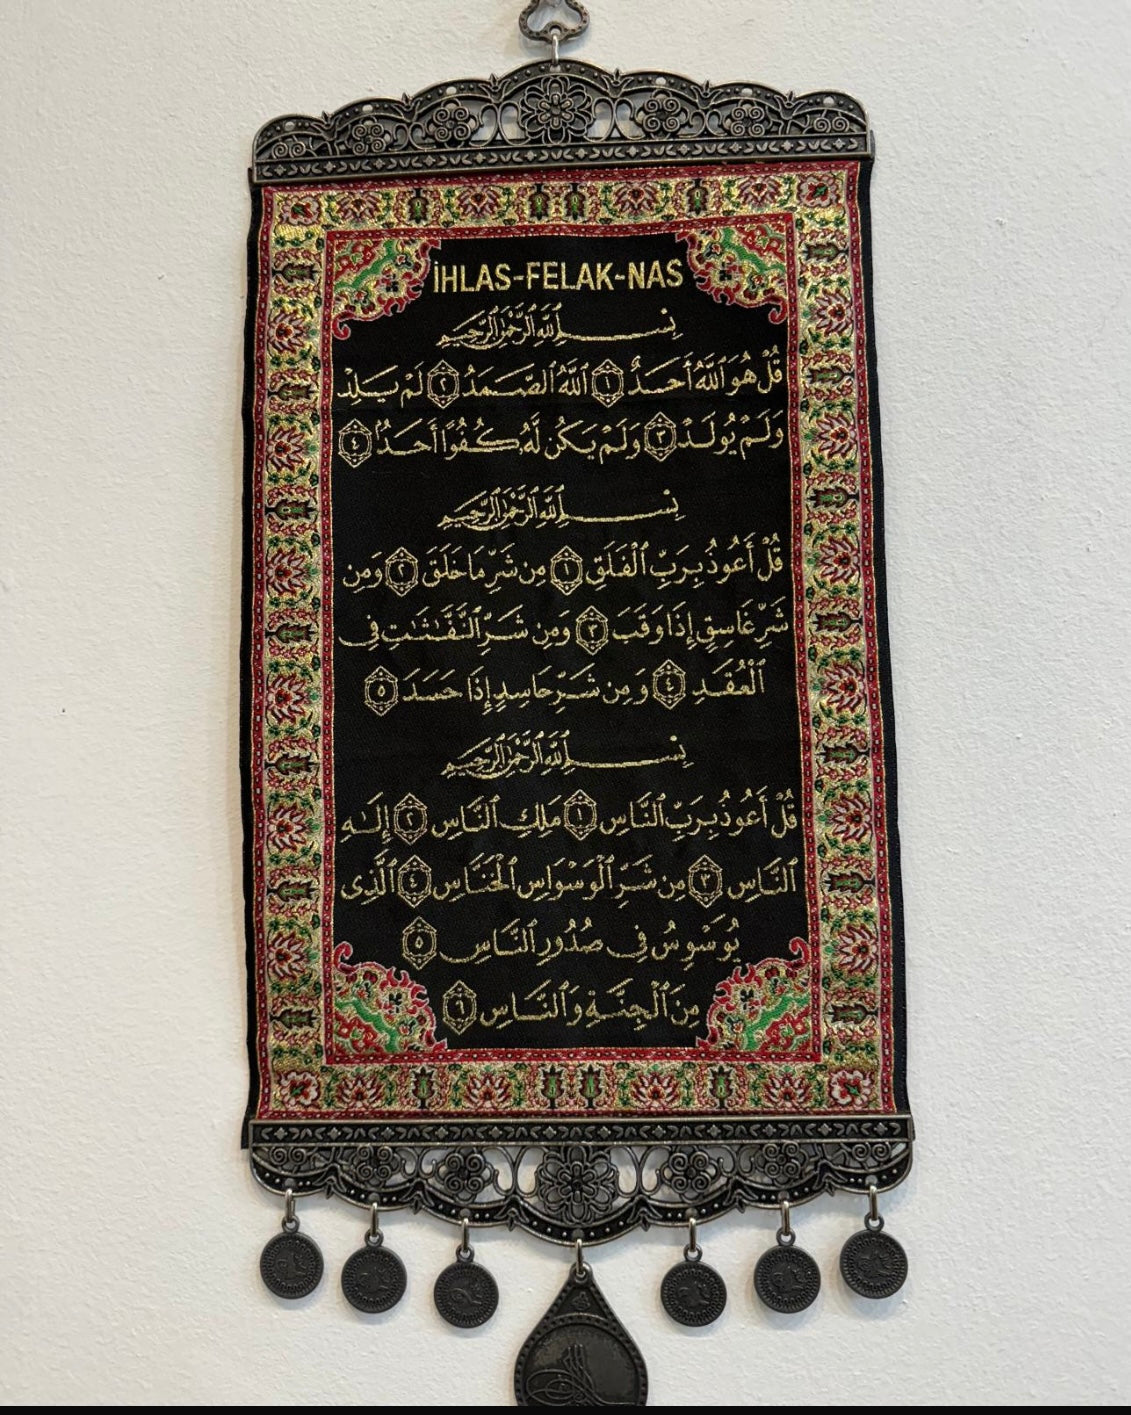 İHLAS-FELAK-NAS
بِسْمِ اللَّهِ الرَّحْمَٰنِ الرَّحِيمِ
قُلْ هُوَ ٱللَّهُ أَحَدٌ ١ ٱللَّهُ ٱلصَّمَدُ ٢ لَمْ يَلِدْ
وَلَمْ يُولَدْ ٣ وَلَمْ يَكُن لَّهُۥ كُفُوًا أَحَدٌۢ ٤
بِسْمِ اللَّهِ الرَّحْمَٰنِ الرَّحِيمِ
قُلْ أَعُوذُ بِرَبِّ ٱلْفَلَقِ ١ مِن شَرِّ مَا خَلَقَ ٢ وَمِن
شَرِّ غَاسِقٍ إِذَا وَقَبَ ٣ وَمِن شَرِّ ٱلنَّفَّٰثَٰتِ فِى
ٱلْعُقَدِ ٤ وَمِن شَرِّ حَاسِدٍ إِذَا حَسَدَ ٥
بِسْمِ اللَّهِ الرَّحْمَٰنِ الرَّحِيمِ
قُلْ أَعُوذُ بِرَبِّ ٱلنَّاسِ ١ مَلِكِ ٱلنَّاسِ ٢ إِلَٰهِ
ٱلنَّاسِ ٣ مِن شَرِّ ٱلْوَسْوَاسِ ٱلْخَنَّاسِ ٤ ٱلَّذِى
يُوَسْوِسُ فِى صُدُورِ ٱلنَّاسِ ٥
مِنَ ٱلْجِنَّةِ وَٱلنَّاسِ ٦